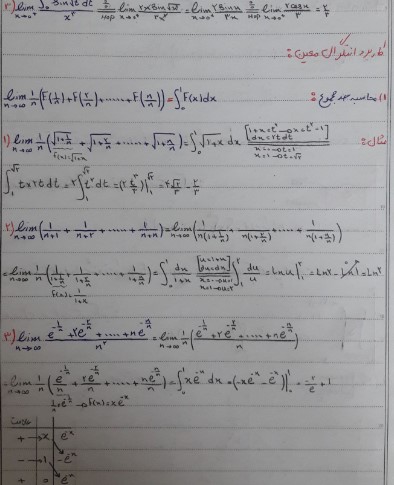 ۳) lim x→0⁺ ∫₀ Sin√t dt / x³ = 0/0 Hop lim x→0⁺ ۲x Sin√x² / ۳x² = lim x→0⁺ ۲Sinx / ۳x = 0/0 Hop lim x→0⁺ ۲Cosx / ۳ = ۲/۳
کاربرد انتگرال معین:
۱) محاسبه حد مجموع: lim n→∞ 1/n (F(1/n) + F(۲/n) + ..... + F(n/n)) = ∫₀¹ F(x) dx
مثال:
۱) lim n→∞ 1/n (√(1+1/n) + √(1+۲/n) + ..... + √(1+n/n)) = ∫₀¹ √(1+x) dx [1+x=t² → x=t²-1 dx=۲t dt] x=0→t=1 x=1→t=√۲
f(x)=√(1+x)
∫₁^√۲ t×۲t dt = ۲∫₁^√۲ t² dt = (۲ t³/۳)|₁^√۲ = ۴√۲/۳ - ۲/۳
۲) lim n→∞ (1/(n+1) + 1/(n+۲) + ..... + 1/(n+n)) = lim n→∞ (1/n(1+1/n) + 1/n(1+۲/n) + ..... + 1/n(1+n/n))
= lim n→∞ 1/n (1/(1+1/n) + 1/(1+۲/n) + ..... + 1/(1+n/n)) = ∫₀¹ dx/(1+x) [u=1+x du=dx] x=0→u=1 x=1→u=۲ ∫₁² du/u = Ln u|₁² = Ln۲ - Ln1 = Ln۲
f(x)=1/(1+x)
۳) lim n→∞ (e^(-1/n) + ۲e^(-۲/n) + ..... + ne^(-n/n)) / n² = lim n→∞ 1/n ((e^(-1/n) + ۲e^(-۲/n) + ..... + ne^(-n/n)) / n)
= lim n→∞ 1/n (e^(-1/n)/n + ۲e^(-۲/n)/n + ..... + ne^(-n/n)/n) = ∫₀¹ xe^(-x) dx = (-xe^(-x) - e^(-x))|₀¹ = -۲/e + 1
1/n e^(-1/n) → f(x)=xe^(-x)
علامت
+ x e^(-x)
- 1 -e^(-x)
+ 0 e^(-x)